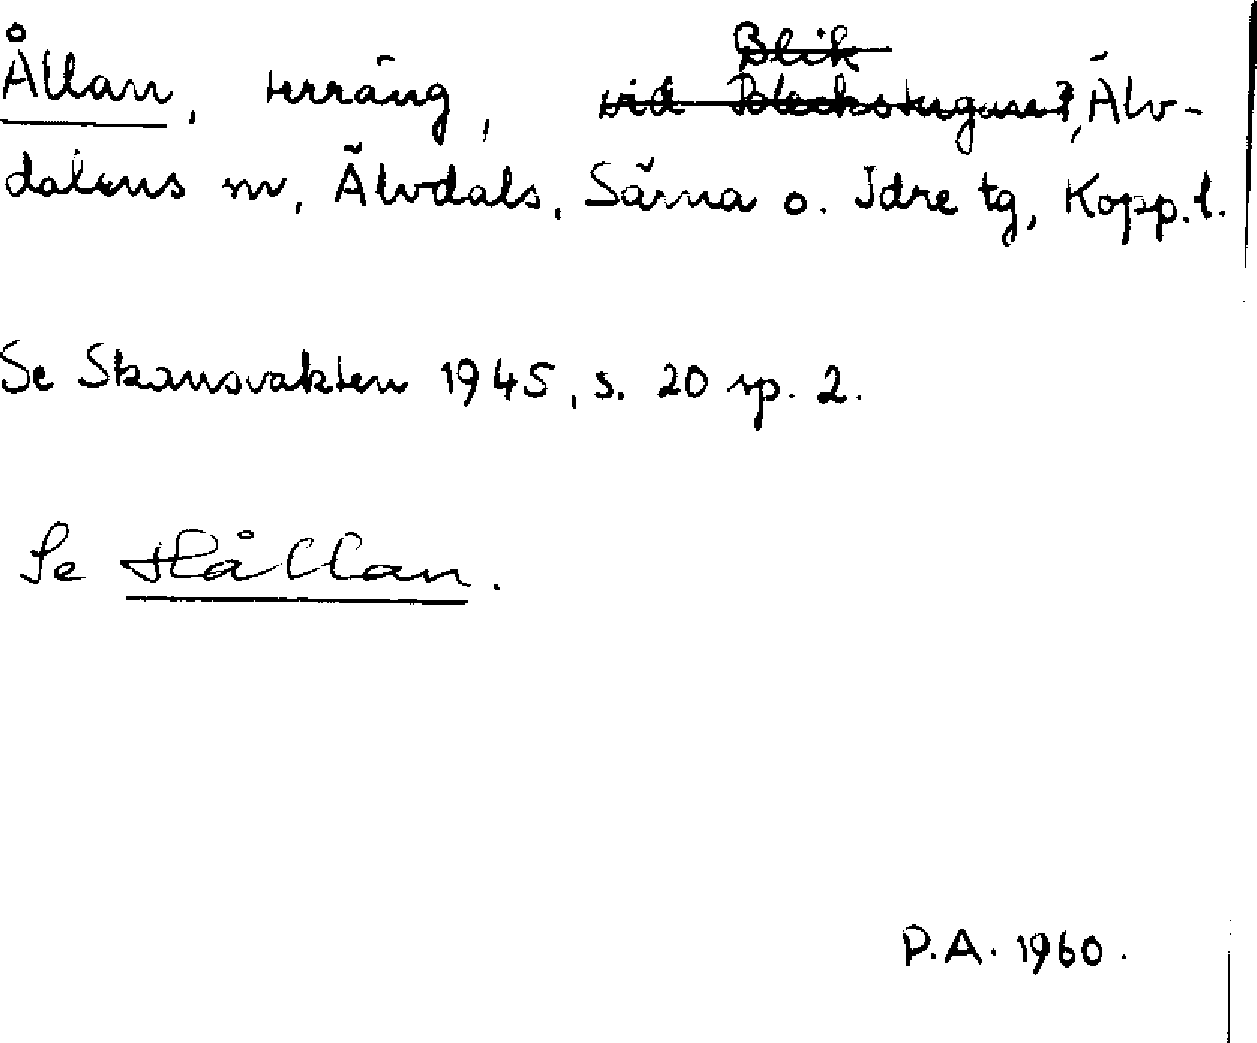 Blik
Ållan, terräng, vid Blecksstugan?, Älv-
dalens sn, Älvdals, Särna o. Idre tg, Kopp. l.
Se Skansvakten 1945, s. 20 sp. 2.
Se Hållan.
P.A. 1960.